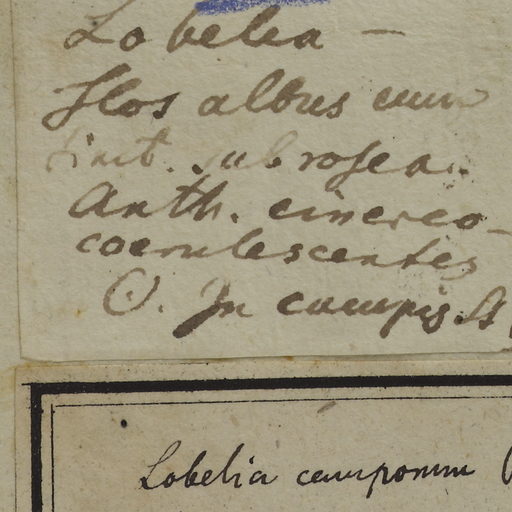 Lobelia —
Flos albus cum
tinct. subrosea.
Anth. cinereo-
coerulescentes
☉. In campis.
Lobelia camporum